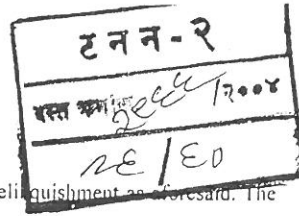 टनन-२
दस्त क्रमांक २९८८ /२००४
२६ / ६०
elinquishment as aforesaid. The